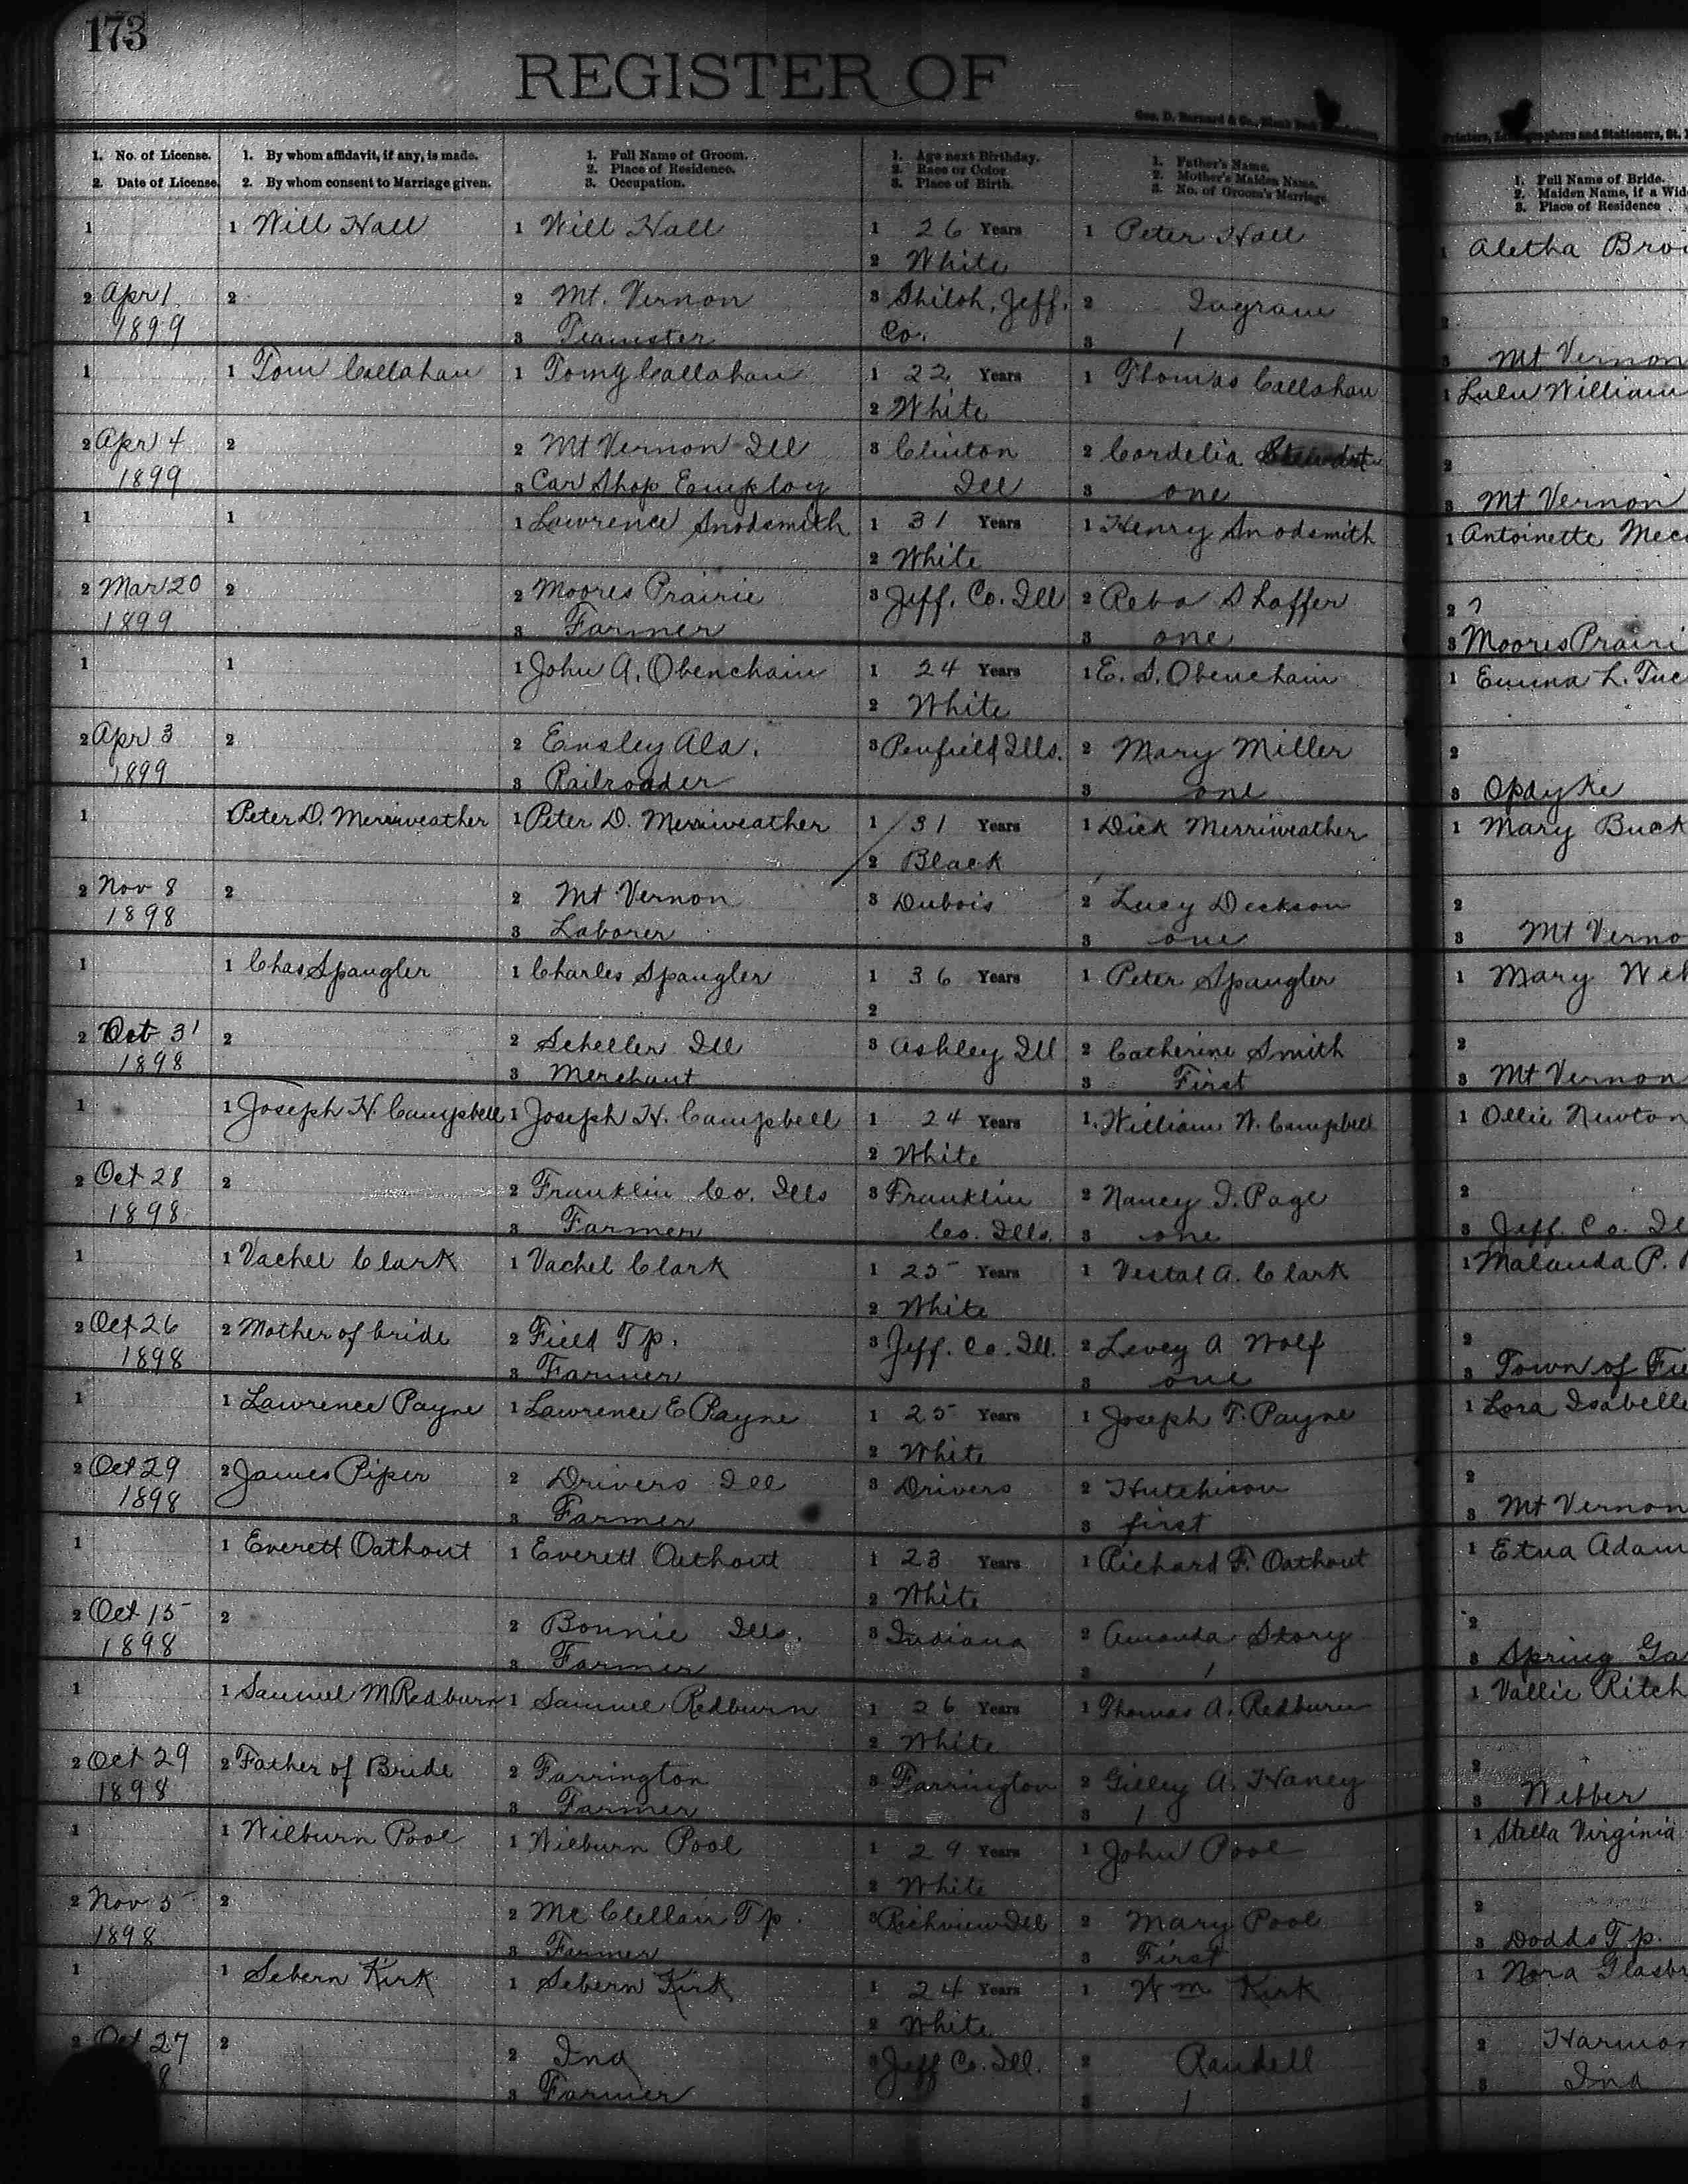 173
REGISTER OF
Geo. D. Barnard & Co., Blank Book
Printers, Lithographers and Stationers, St.
1. No. of License.
2. Date of License.
1. By whom affidavit, if any, is made.
2. By whom consent to Marriage given.
1. Full Name of Groom.
2. Place of Residence.
3. Occupation.
1. Age next Birthday.
2. Race or Color
3. Place of Birth.
1. Father's Name.
2. Mother's Maiden Name.
3. No. of Groom's Marriage.
1. Full Name of Bride.
2. Maiden Name, if a Wid
3. Place of Residence
1 1 Will Hall 1 Will Hall 1 26 Years 1 Peter Hall 1 Aletha Bro
2 White
2 Apr 1 2 2 Mt. Vernon 3 Shiloh, Jeff. 2 Ingram 2
1899 3 Teamster Co. 3 1 3 Mt Vernon
1 1 Tom Callahan 1 Tomy Callahan 1 22 Years 1 Thomas Callahan 1 Lulu William
2 White
2 Apr 4 2 2 Mt Vernon Ill 3 Clinton 2 Cordelia Stewart 2
1899 3 Car Shop Employ Ill 3 one 3 Mt Vernon
1 1 1 Lawrence Snodsmith 1 31 Years 1 Henry Snodsmith 1 Antoinette Mec
2 White
2 Mar 20 2 2 Moores Prairie 3 Jeff. Co. Ill 2 Reba Shaffer 2 ?
1899 3 Farmer 3 one 3 Moores Prairi
1 1 1 John A. Obenchain 1 24 Years 1 E. S. Obenchain 1 Emma L. Tuc
2 White
2 Apr 3 2 2 Ensley Ala. 3 Penfield Ills. 2 Mary Miller 2
1899 3 Railroader 3 one 3 Opdyke
1 1 Peter D. Merriweather 1 Peter D. Merriweather 1 31 Years 1 Dick Merriweather 1 Mary Buck
2 Black
2 Nov 8 2 2 Mt Vernon 3 Dubois 2 Lucy Deckson 2
1898 3 Laborer 3 one 3 Mt Verno
1 1 Chas Spangler 1 Charles Spangler 1 36 Years 1 Peter Spangler 1 Mary Weh
2
2 Oct 31 2 2 Scheller Ill 3 Ashley Ill 2 Catherine Smith 2
1898 3 Merchant 3 First 3 Mt Vernon
1 1 Joseph H. Campbell 1 Joseph H. Campbell 1 24 Years 1. William W. Campbell 1 Ollie Newton
2 White
2 Oct 28 2 2 Franklin Co. Ills 3 Franklin 2 Nancy J. Page 2
1898 3 Farmer Co. Ills. 3 one 3 Jeff. Co. Il
1 1 Vachel Clark 1 Vachel Clark 1 25 Years 1 Vestal A. Clark 1 Malanda P.
2 White
2 Oct 26 2 Mother of bride 2 Field Tp. 3 Jeff. Co. Ill. 2 Levey A Wolf 2
1898 3 Farmer 3 one 3 Town of Fie
1 1 Lawrence Payne 1 Lawrence E Payne 1 25 Years 1 Joseph T. Payne 1 Lora Isabelle
2 White
2 Oct 29 2 James Piper 2 Drivers Ill 3 Drivers 2 Hutchison 2
1898 3 Farmer 3 first 3 Mt Vernon
1 1 Everett Oathout 1 Everett Oathout 1 23 Years 1 Richard F. Oathout 1 Etna Adam
2 White
2 Oct 15 2 2 Bonnie Ills. 3 Indiana 2 Amanda Story 2
1898 3 Farmer 3 1 3 Spring Ga
1 1 Samuel M Redburn 1 Samuel Redburn 1 26 Years 1 Thomas A. Redburn 1 Vallie Ritch
2 White
2 Oct 29 2 Father of Bride 2 Farrington 3 Farrington 2 Gilley A. Haney 2
1898 3 Farmer 3 1 3 Webber
1 1 Wilburn Pool 1 Wilburn Pool 1 29 Years 1 John Pool 1 Stella Virginia
2 White
2 Nov 5 2 2 Mc Clellan Tp. 3 Richview Ill 2 Mary Pool 2
1898 3 Farmer 3 First 3 Dodds Tp.
1 1 Sebern Kirk 1 Sebern Kirk 1 24 Years 1 Wm Kirk 1 Nora Glasbr
2 White
2 Oct 27 2 2 Ind 3 Jeff Co. Ill. 2 Randell 2 Harmon
8 3 Farmer 3 1 3 Ind